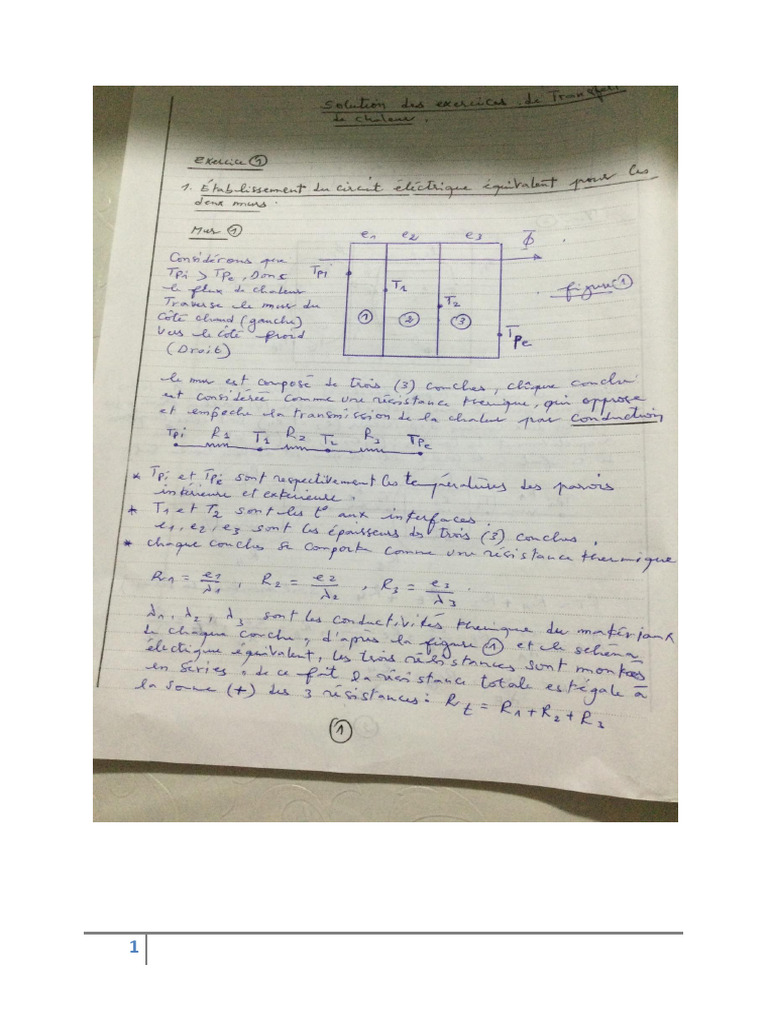 Solution des exercices de Transfert
de chaleur.
Exercice ①
1. Établissement du circuit électrique équivalent pour les
deux murs.
Mur ①
e1 e2 e3 Φ
Considérons que
Tpi > Tpe, Donc
le flux de chaleur
Traverse le mur du
côté chaud (gauche)
vers le côté froid
(Droit)
Tpi
T1
T2
Tpe
① ② ③
figure ①
le mur est composé de trois (3) couches, chaque couche
est considérée comme une résistance thermique, qui oppose
et empeche la transmission de la chaleur par conduction
Tpi R1 T1 R2 T2 R3 Tpe
* Tpi et Tpe sont respectivement les températures des parois
intérieure et extérieure.
* T1 et T2 sont les t° aux interfaces.
e1, e2, e3 sont les épaisseurs des trois (3) couches.
* chaque couches se comporte comme une résistance thermique
R1 = e1/λ1, R2 = e2/λ2, R3 = e3/λ3.
λ1, λ2, λ3 sont les conductivités thermique du matériaux
de chaque couche, d'après la figure ① et le schéma
électrique équivalent, les trois résistances sont montées
en séries, de ce fait la résistance totale est égale à
la somme (+) des 3 résistances: Rt = R1 + R2 + R3
①
1